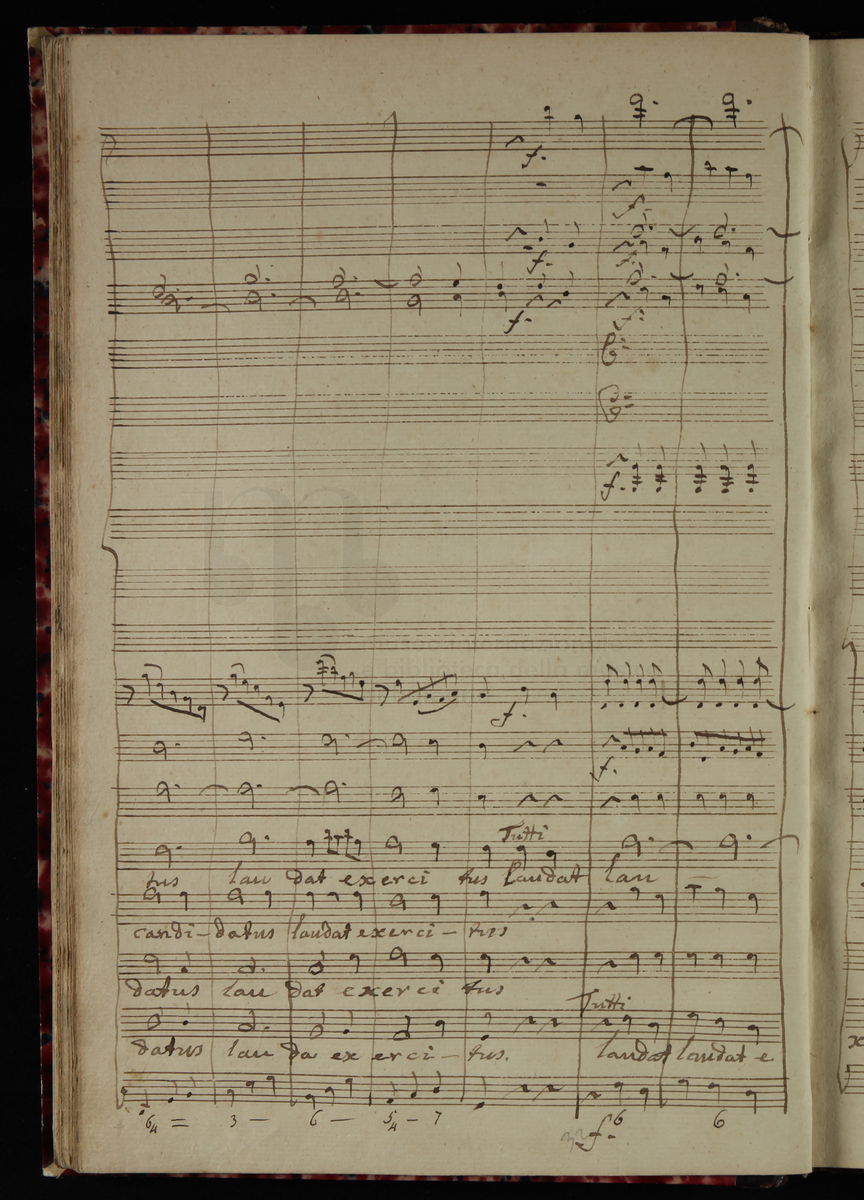 f.
f.
f.
f.
f.
f.
f.
f.
Tutti
tus lau dat exerci tus laudat lau
candi - datus laudat exerci - tus
datus lau dat exerci tus
Tutti
datus lau da ex erci - tus. laudat laudat e
6 4 = 3 - 6 - 5 4 - 7 6 6
f.